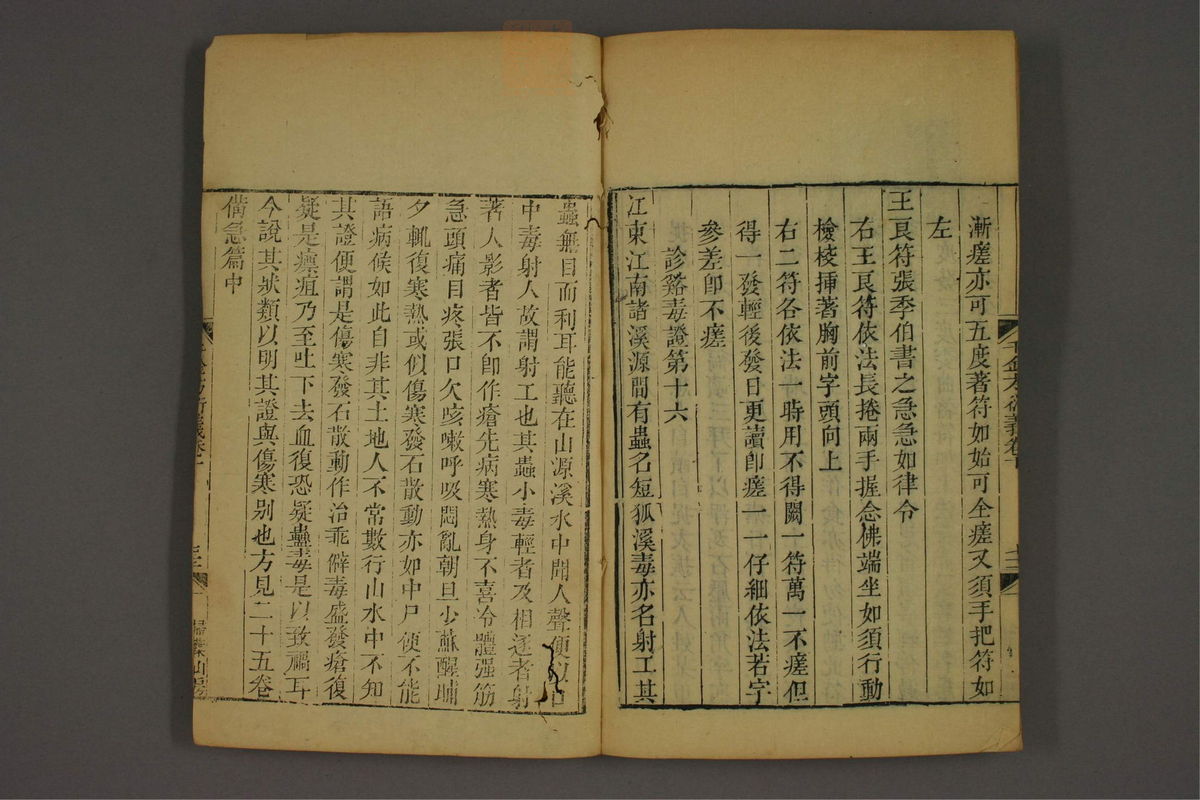 漸瘥亦可五度著符如始可全瘥又須手把符如
左
王良符張季伯書之急急如律令
右王良符依法長捲兩手握念佛端坐如須行動
檢校揷著胸前字頭向上
右二符各依法一時用不得闕一符萬一不瘥但
得一發輕後發日更讀卽瘥一一仔細依法若字
參差卽不瘥
診谿毒證第十六
江東江南諸溪源間有蟲名短狐溪毒亦名射工其
蟲無目而利耳能聽在山源溪水中聞人聲便以口
中毒射人故謂射工也其蟲小毒輕者及相逐者射
著人影者皆不卽作瘡先病寒熱身不喜冷體强筋
急頭痛目疼張口欠咳嗽呼吸悶亂朝旦少蘇醒晡
夕輒復寒熱或似傷寒發石散動亦如中尸便不能
語病候如此自非其土地人不常數行山水中不知
其證便謂是傷寒發石散動作治乖僻毒盛發瘡復
疑是瘭疽乃至吐下去血復恐疑蠱毒是以致禍耳
今說其狀類以明其證與傷寒别也方見二十五卷
備急篇中
掃葉山房